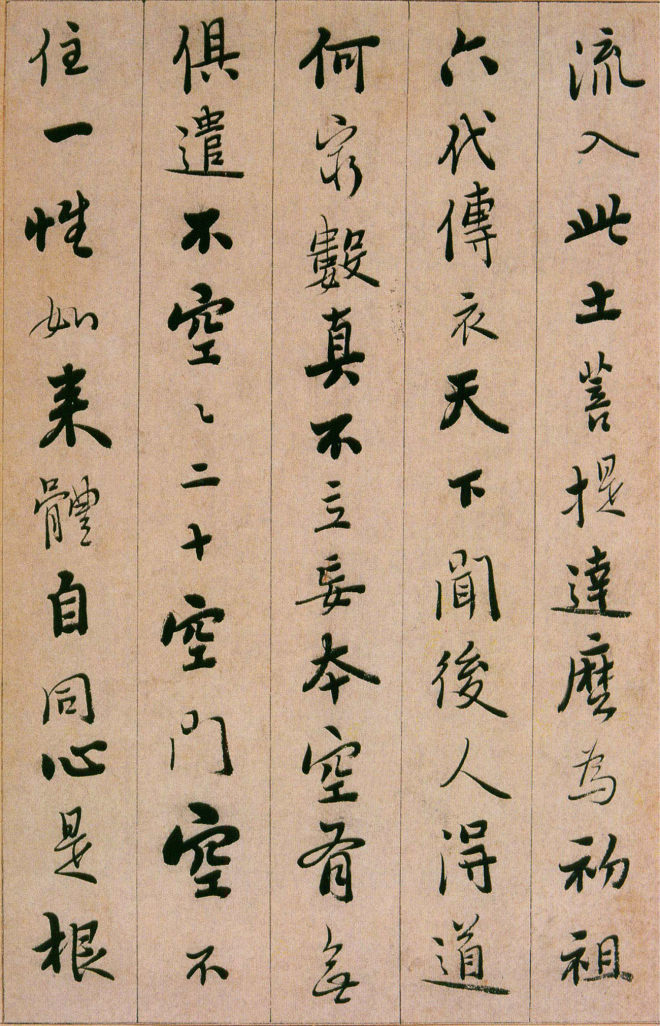 流入此土菩提達磨為初祖
六代傳衣天下聞後人得道
何窮數真不立妄本空有無
俱遣不空〻二十空門空不
住一性如来體自同心是根